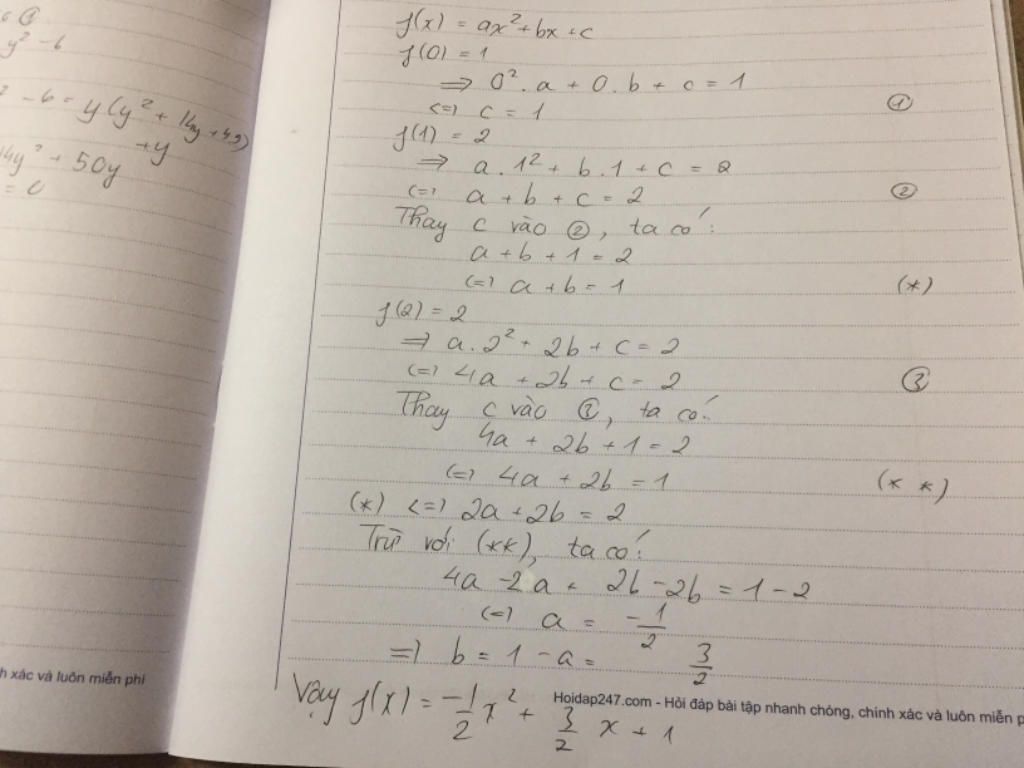 y² - 6
² - 6 = y(y² + 14y + 49)
+ y
14y² + 50y
= 0
h xác và luôn miễn phí
f(x) = ax² + bx + c
f(0) = 1
=> 0² . a + 0 . b + c = 1
<=> c = 1 ①
f(1) = 2
=> a . 1² + b . 1 + c = 2
<=> a + b + c = 2 ②
Thay c vào ②, ta có:
a + b + 1 = 2
<=> a + b = 1 (*)
f(2) = 2
=> a . 2² + 2b + c = 2
<=> 4a + 2b + c = 2 ③
Thay c vào ③, ta có:
4a + 2b + 1 = 2
<=> 4a + 2b = 1 (**)
(*) <=> 2a + 2b = 2
Trừ với (**), ta có:
4a - 2a + 2b - 2b = 1 - 2
<=> a = -1/2
=> b = 1 - a = 3/2
Vậy f(x) = -1/2 x² + 3/2 x + 1
Hoidap247.com - Hỏi đáp bài tập nhanh chóng, chính xác và luôn miễn p